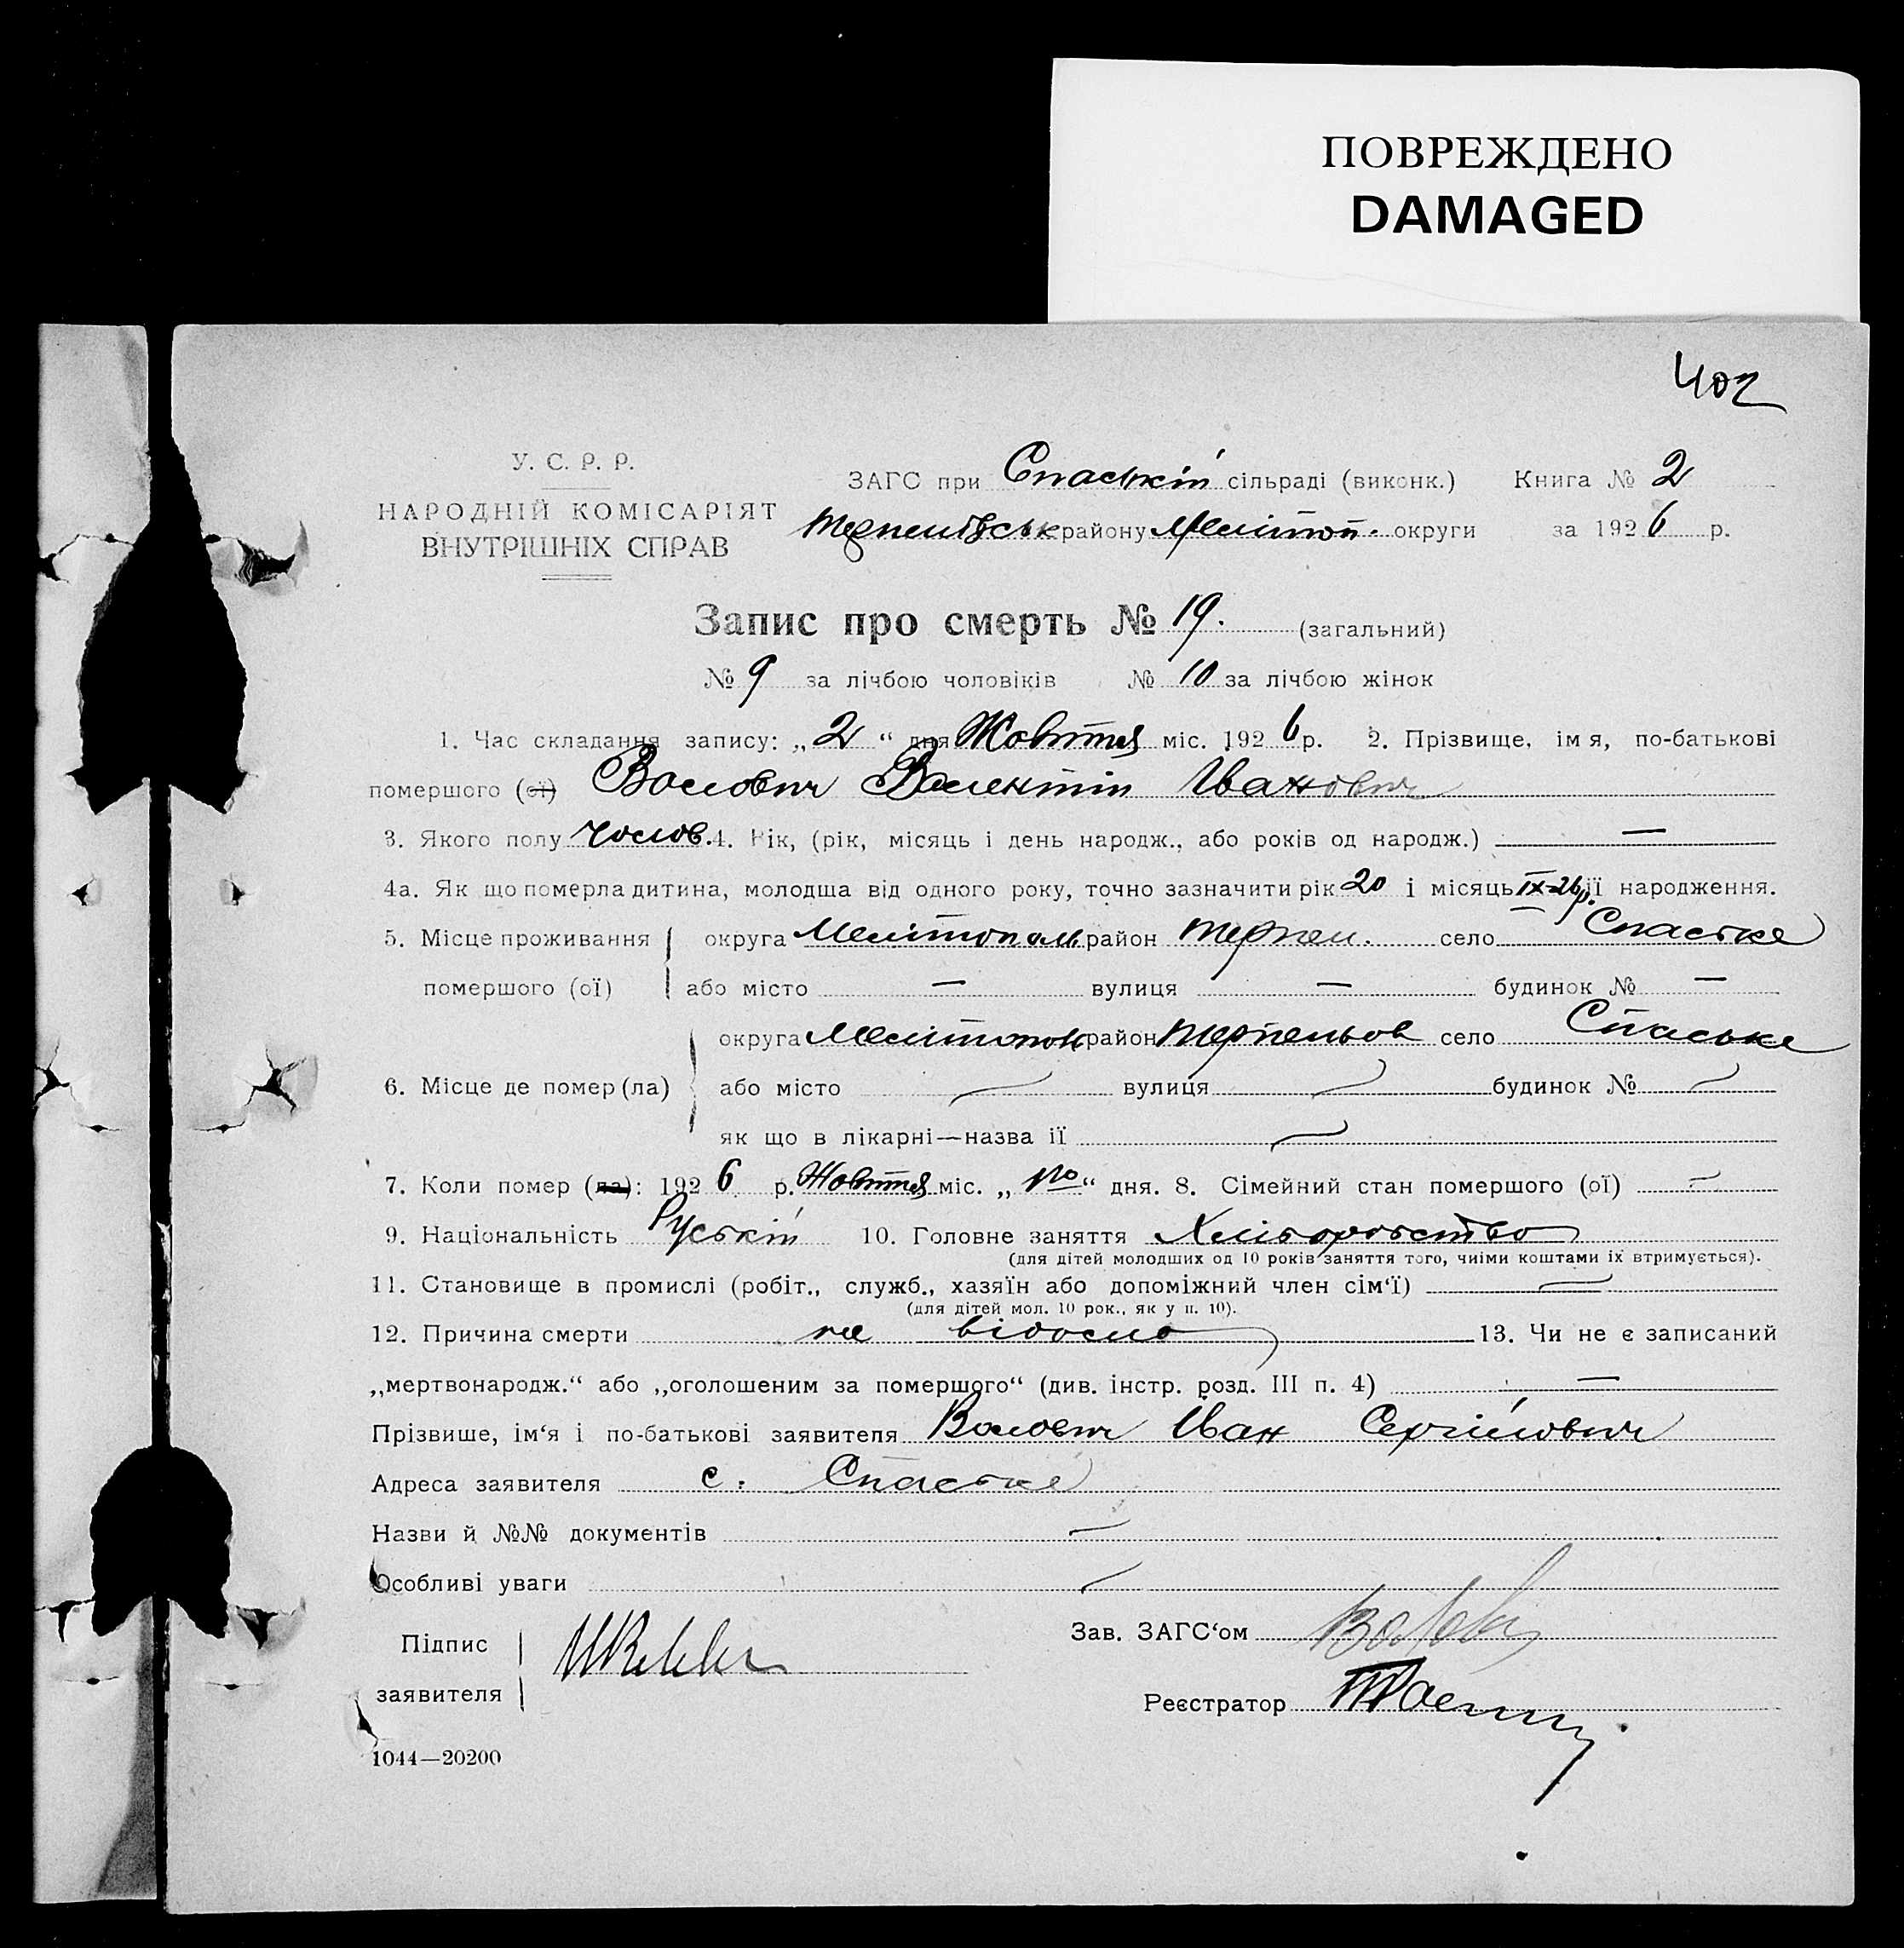 ПОВРЕЖДЕНО
DAMAGED
402
У. С. Р. Р.
НАРОДНІЙ КОМІСАРІЯТ
ВНУТРІШНІХ СПРАВ
ЗАГС при Спаській сільраді (виконк.) Книга № 2
району Мелітоп. округи за 1926 р.
Запис про смерть № 19. (загальний)
№ 9 за лічбою чоловіків № 10 за лічбою жінок
1. Час складання запису: „2“ дня Жовтня міс. 1926 р. 2. Прізвище, імя, по-батькові
помершого (ої) Волович Валентін Іванович
3. Якого полу чолов. 4. Вік, (рік, місяць і день народж., або років од народж.) —
4а. Як що померла дитина, молодша від одного року, точно зазначити рік 20 і місяць ІХ-26р. її народження.
5. Місце проживання помершого (ої) округа Мелітополь район Терпен. село Спаське
або місто — вулиця — будинок № —
6. Місце де помер (ла) округа Мелітопол район Терпеньов село Спаське
або місто — вулиця — будинок № —
як що в лікарні—назва її —
7. Коли помер (ла): 1926 р. Жовтня міс. „1го“ дня. 8. Сімейний стан помершого (ої) —
9. Національність Руській 10. Головне заняття Хліборобство
(для дітей молодших од 10 років заняття того, чиїми коштами їх втримується).
11. Становище в промислі (робіт., служб., хазяїн або допоміжний член сім‘ї) —
(для дітей мол. 10 рок., як у п. 10).
12. Причина смерти не відомо 13. Чи не є записаний
„мертвонародж.“ або „оголошеним за помершого“ (див. інстр. розд. III п. 4) —
Прізвише, ім‘я і по-батькові заявителя Волович Іван Сергійович
Адреса заявителя с. Спаське
Назви й №№ документів —
Особливі уваги —
Підпис заявителя
Зав. ЗАГС‘ом
Реєстратор
1044—20200